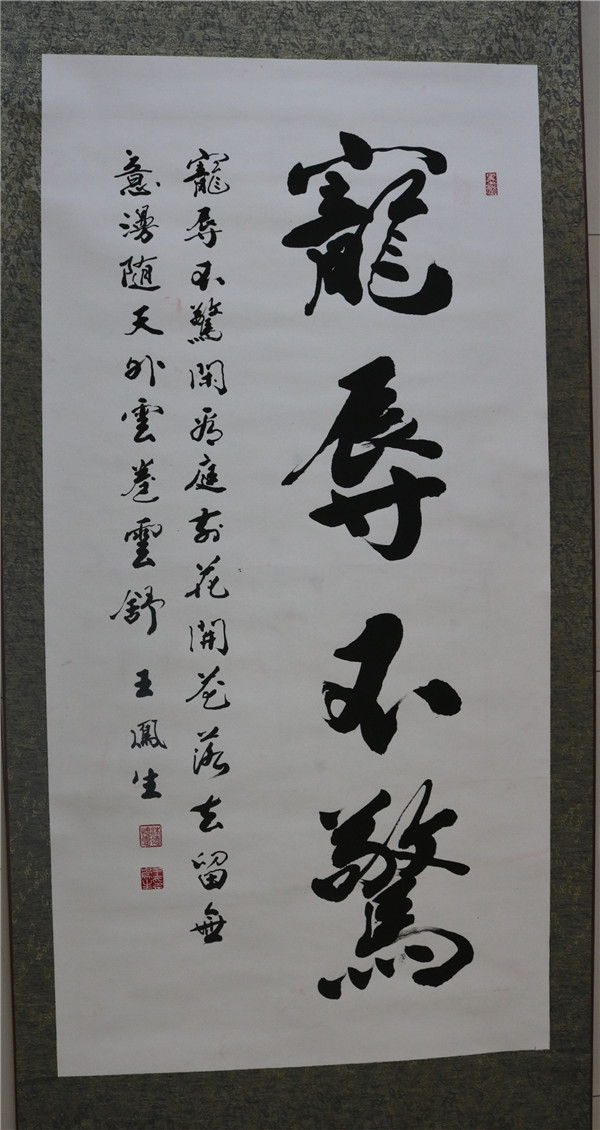 寵辱不驚
寵辱不驚閑看庭前花開花落去留無
意漫随天外雲卷雲舒 王鳳生